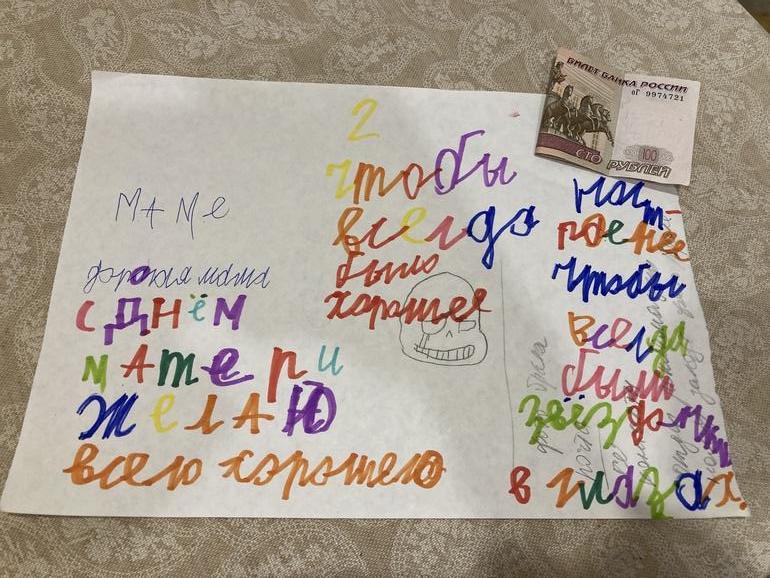 маме
дорогая мама
с днём
матери
желаю
всего хорошего
2
чтобы
всегда
было
хорошее
наст-
роенее
чтобы
всегда
были
звёздачки
в глазах.
БИЛЕТ БАНКА РОССИИ
оГ 9974721
СТО
100
РУБЛЕЙ